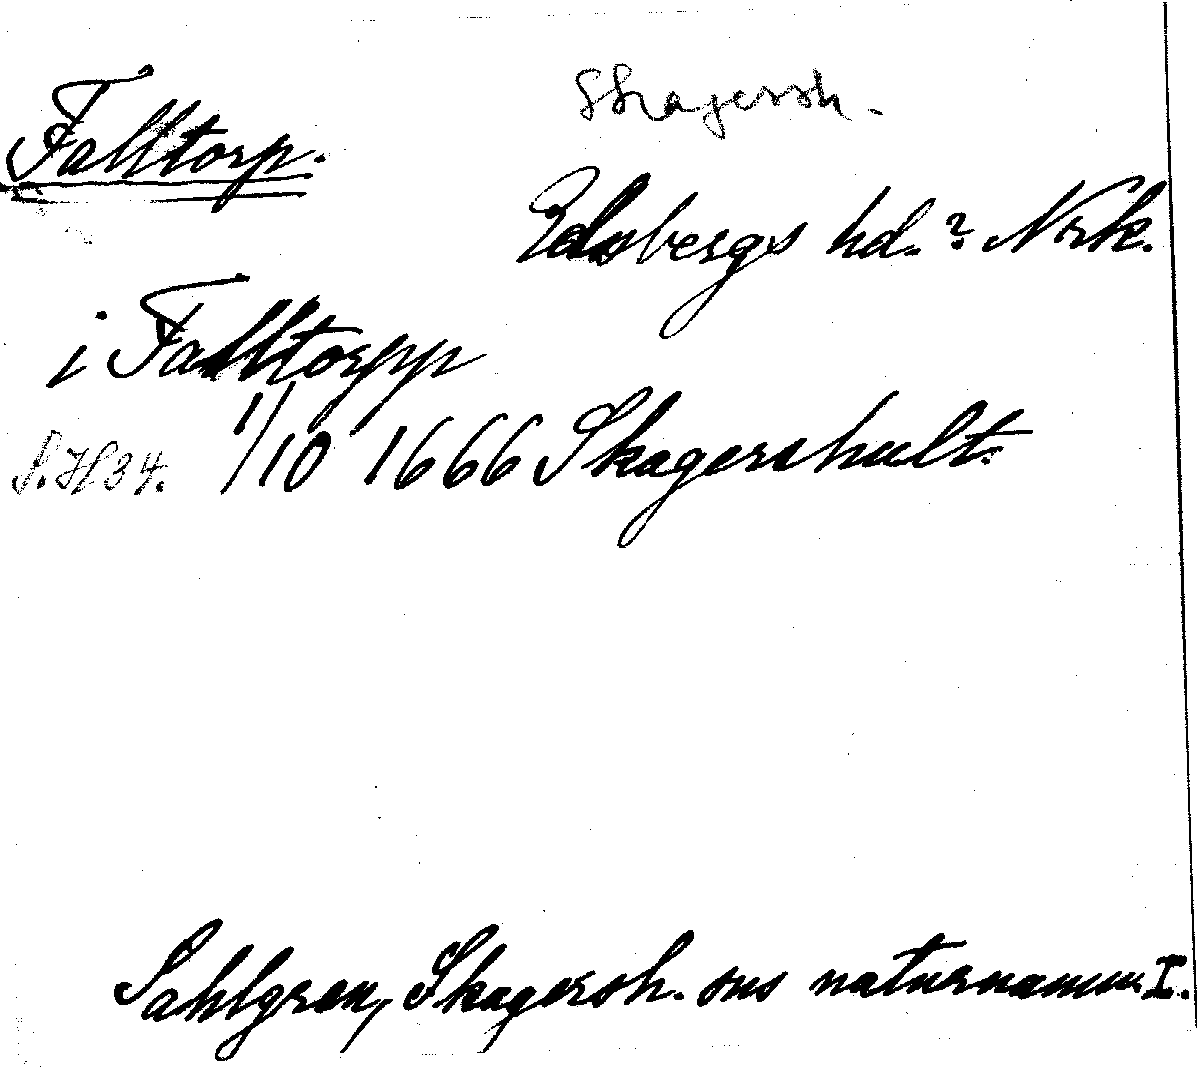 Falltorp.
Skagersh.
Edsbergs hd.? Nrk.
i Falltorpp
S.H34. 1/10 1666 Skagershult.
Sahlgren, Skagersh. sns naturnamn I.